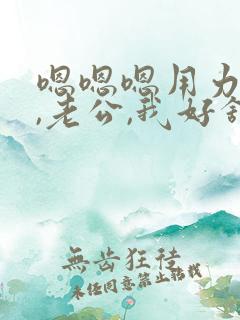 嗯嗯嗯用力
,老公,我好
無齿狂徒
未经同意禁止转载